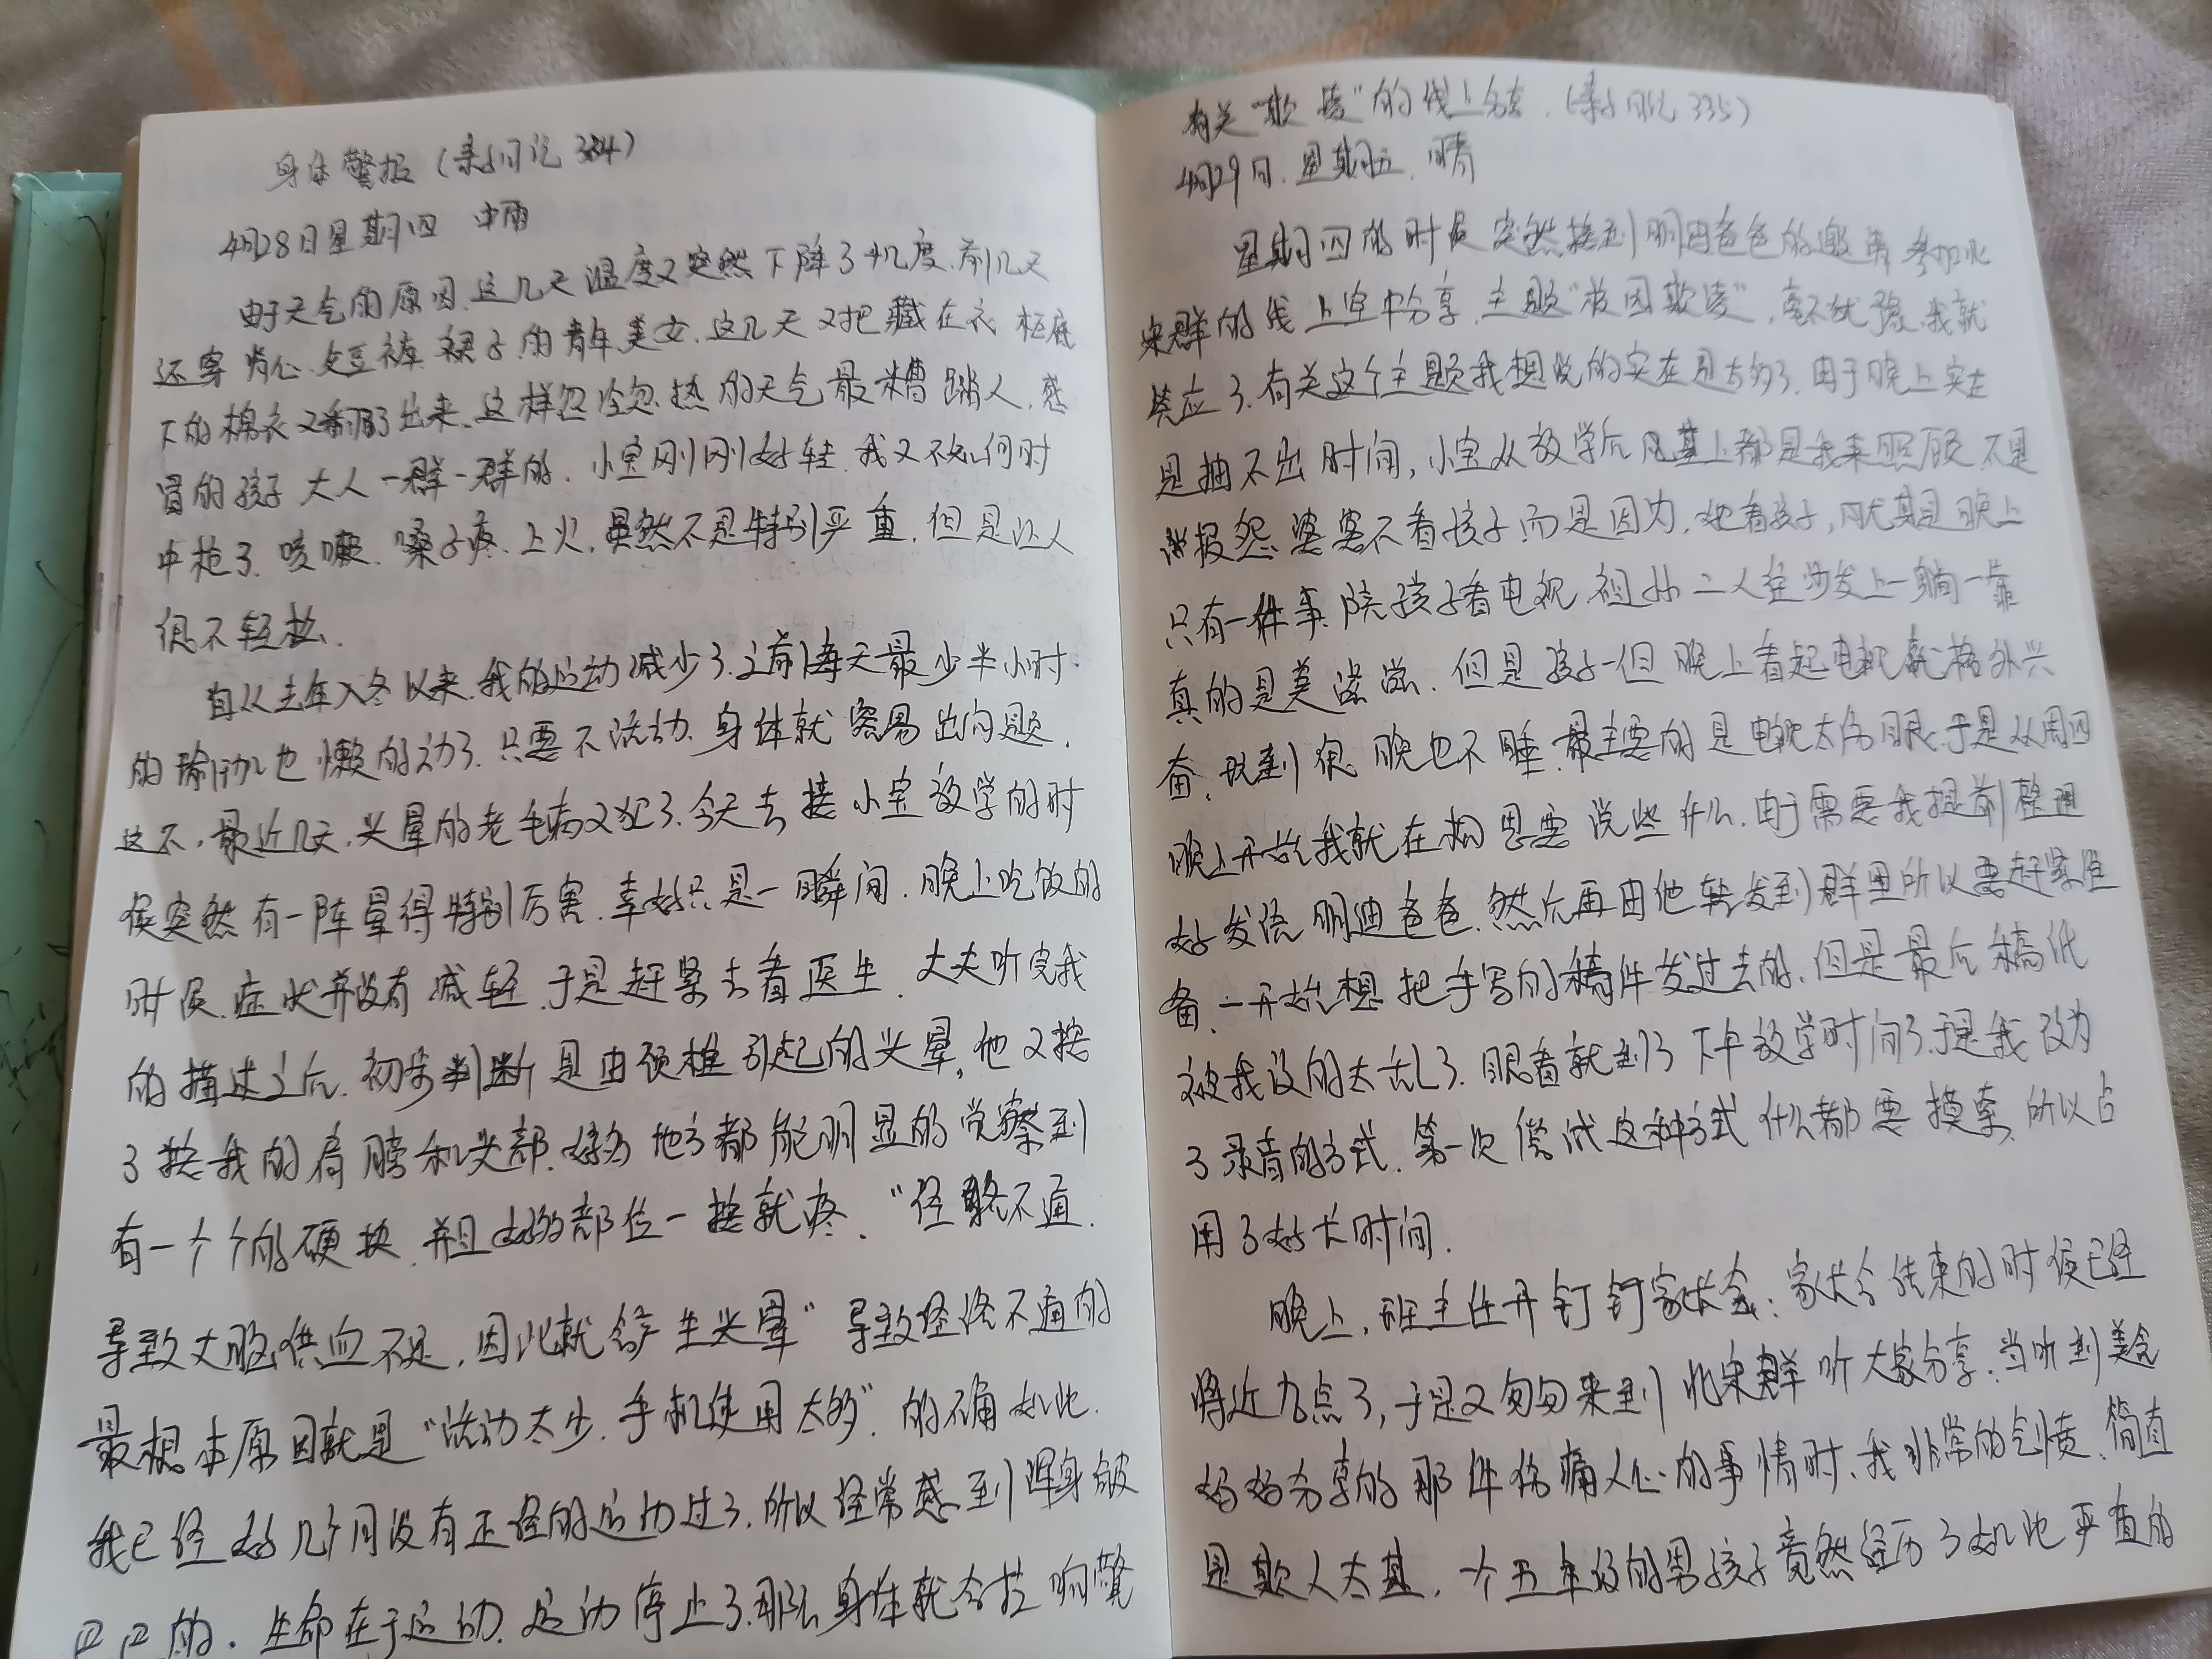 身体警报（亲子日记 334）
4月28日星期四 中雨
由于天气的原因.这几天温度又突然下降了十几度.前几天
还穿背心.短裤.裙子的青年美女.这几天又把藏在衣柜底
下的棉衣又翻了出来.这样忽冷忽热的天气最糟蹋人.感
冒的孩子大人一群一群的.小宝刚刚好转.我又不知何时
中枪了.咳嗽.嗓子疼.上火.虽然不是特别严重,但是让人
很不轻松.
自从去年入冬以来.我的运动减少了.之前每天最少半小时
的瑜伽也懒的动了.只要不活动.身体就容易出问题.
这不,最近几天,头晕的老毛病又犯了.今天去接小宝放学的时
候突然有一阵晕得特别厉害.幸好只是一瞬间.晚上吃饭的
时候.症状并没有减轻.于是赶紧去看医生.大夫听完我
的描述之后.初步判断是由颈椎引起的头晕,他又按
了按我的肩膀和头部.好多地方都能明显的觉察到
有一个个的硬块.并且好多部位一按就疼."经络不通.
导致大脑供血不足,因此就会产生头晕"导致经络不通的
最根本原因就是"活动太少.手机使用太多".的确如此.
我已经好几个月没有正经的运动过了.所以经常感到浑身皱
巴巴的.生命在于运动.运动停止了.那么身体就会拉响警
有关"欺凌"的线上分享.（亲子日记 335）
4月29日.星期五.晴
星期四的时候突然接到明迪爸爸的邀请参加北
宋群的线上空中分享.主题"校园欺凌",毫不犹豫.我就
答应了.有关这个主题我想说的实在是太多了.由于晚上实在
是抽不出时间,小宝从放学后基上都是我来照顾.不是
报怨婆婆不看孩子而是因为.她看孩子,尤其是晚上
只有一件事.陪孩子看电视.祖孙二人往沙发上一躺一靠
真的是美滋滋.但是孩子一但晚上看起电视就格外兴
奋,玩到很晚也不睡.最主要的是电视太伤眼.于是从周四
晚上开始我就在构思要说些什么.由于需要我提前整理
好发给明迪爸爸.然后再由他转发到群里所以要赶紧准
备.一开始想把手写的稿件发过去的.但是最后稿纸
被我改的太乱了.眼看就到了下午放学时间了.于是我改为
了录音的方式.第一次尝试这种方式什么都要摸索,所以占
用了好长时间.
晚上,班主任开钉钉家长会;家长会结束的时候已经
将近九点了,于是又匆匆来到北宋群听大家分享;当听到美含
妈妈分享的那件伤痛人心的事情时.我非常的气愤.简直
是欺人太甚,一个五年级的男孩子竟然经历了如此严重的